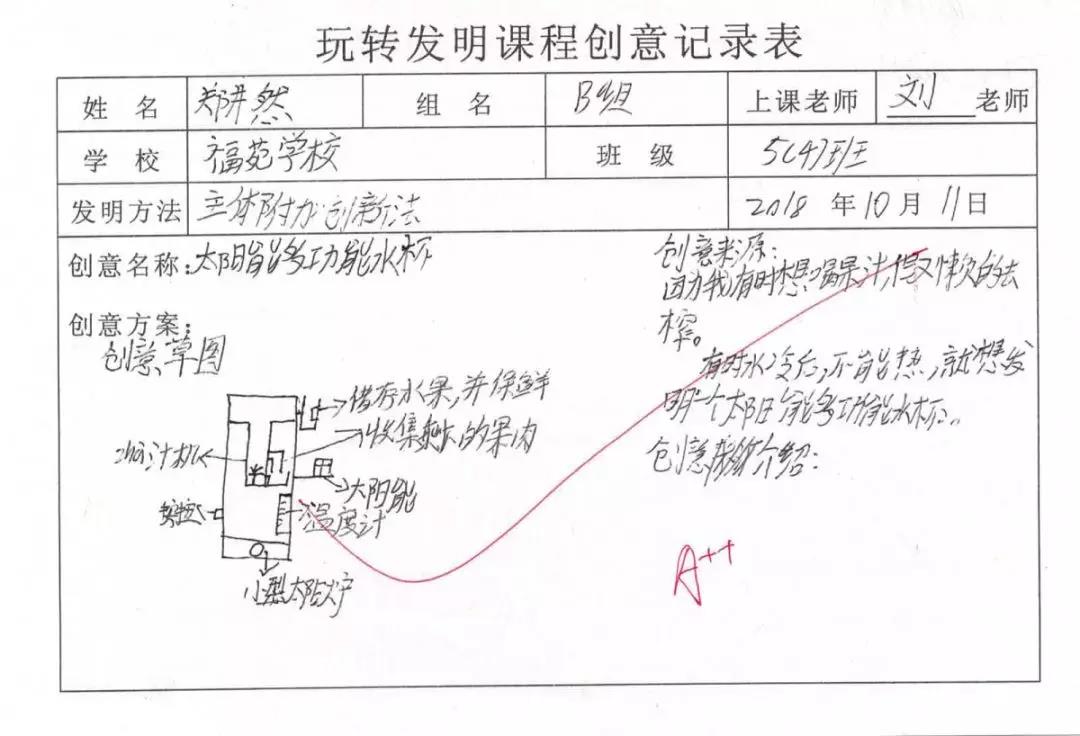 玩转发明课程创意记录表
姓 名 郑 然 组 名 B组 上课老师 刘 老师
学 校 福苑学校 班 级 5(4)班
发明方法 主体附加创新法 2018 年 10 月 11 日
创意名称:太阳能多功能水杯
创意方案:
创意草图
储存水果,并保鲜
收集剩下的果肉
汁机
太阳能
温度计
小型太阳灶
创意来源:
因为我有时想喝果汁,但又懒的去
榨。
有时水冷后,不能热,就想发
明一个太阳能多功能水杯。
创意 介绍:
A++